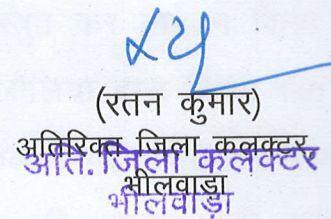 (रतन कुमार)
अतिरिक्त जिला कलक्टर
अति. जिला कलेक्टर
भीलवाड़ा
भीलवाड़ा